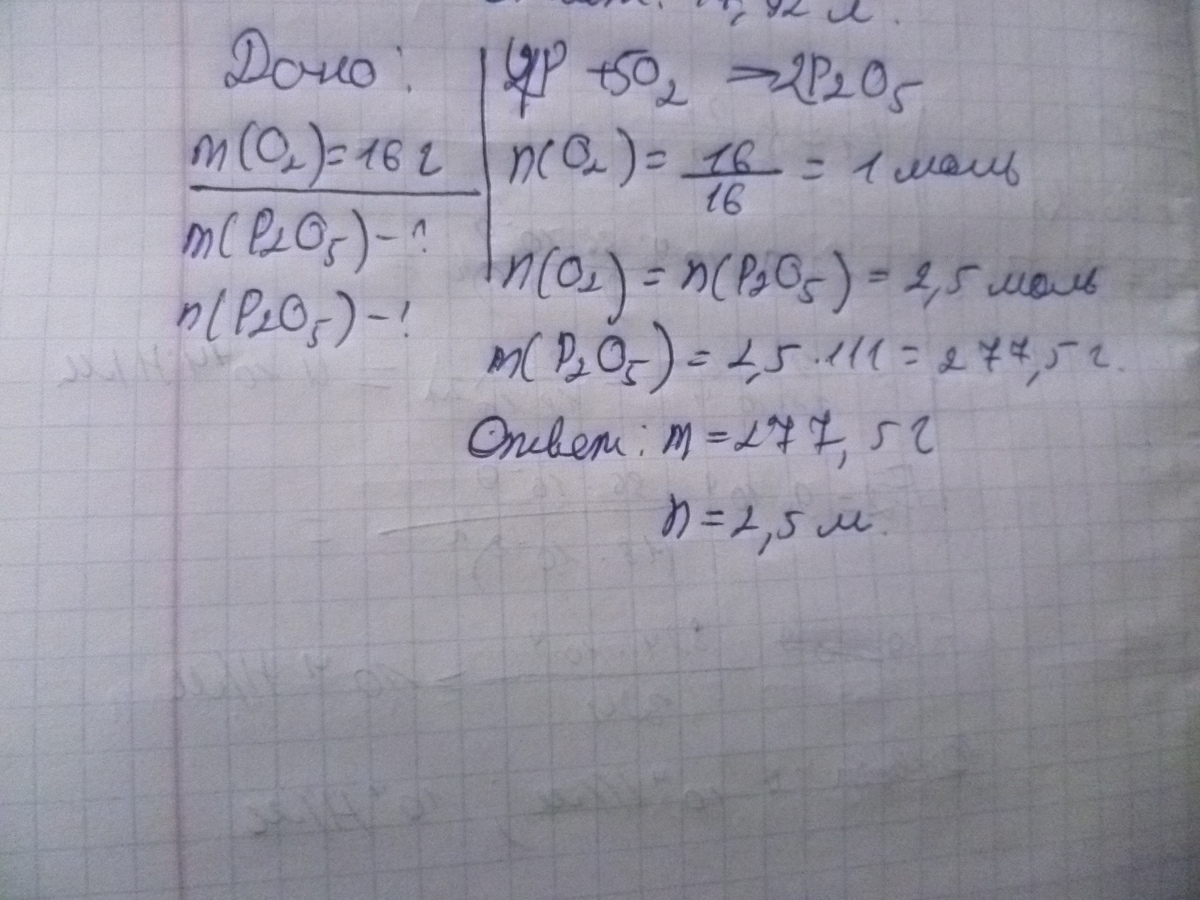 Ответ: 17,92 л.
Дано:
m(O2)=16 г
m(P2O5)-?
n(P2O5)-?
4P +5O2 ⇒2P2O5
n(O2)= 16/16 = 1 моль
n(O2)=n(P2O5)=2,5 моль
m(P2O5)=2,5·111=277,5 г.
Ответ: m=277,5 г
n=2,5 м.